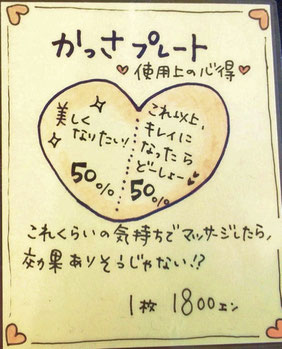 かっさプレート
使用上の心得
美しく
なりたい!
50%
これ以上、
キレイに
なったら
どーしょー
50%
これくらいの気持ちでマッサージしたら、
効果ありそうじゃない!?
1枚 1800エン